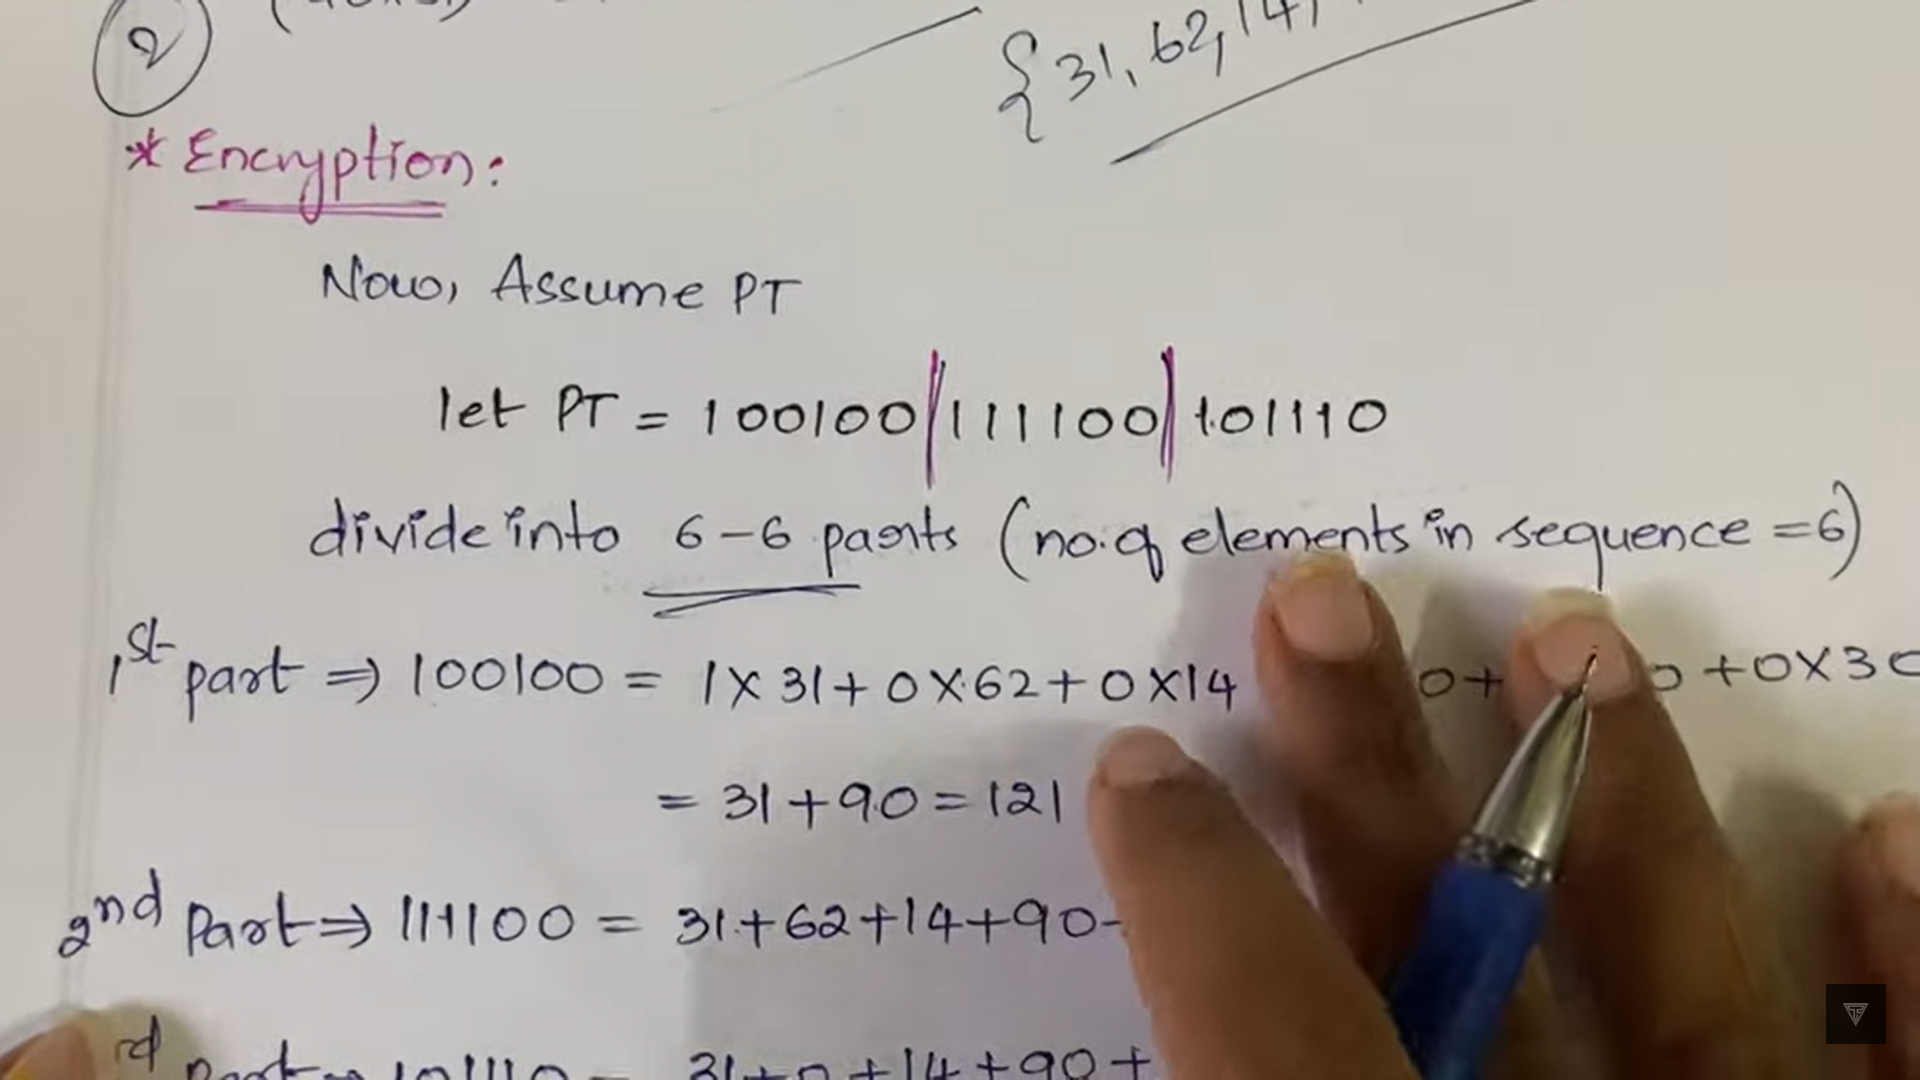 2
{31, 62, 14,
* Encryption:
Now, Assume PT
let PT = 100100|111100|101110
divide into 6-6 parts (no. of elements in sequence = 6)
1st part ⇒ 100100 = 1X31+0X62+0X14 0+ 0 +0X30
= 31+90=121
2nd Part ⇒ 111100 = 31+62+14+90
rd part ⇒ 101110 = 31+0+14+90+